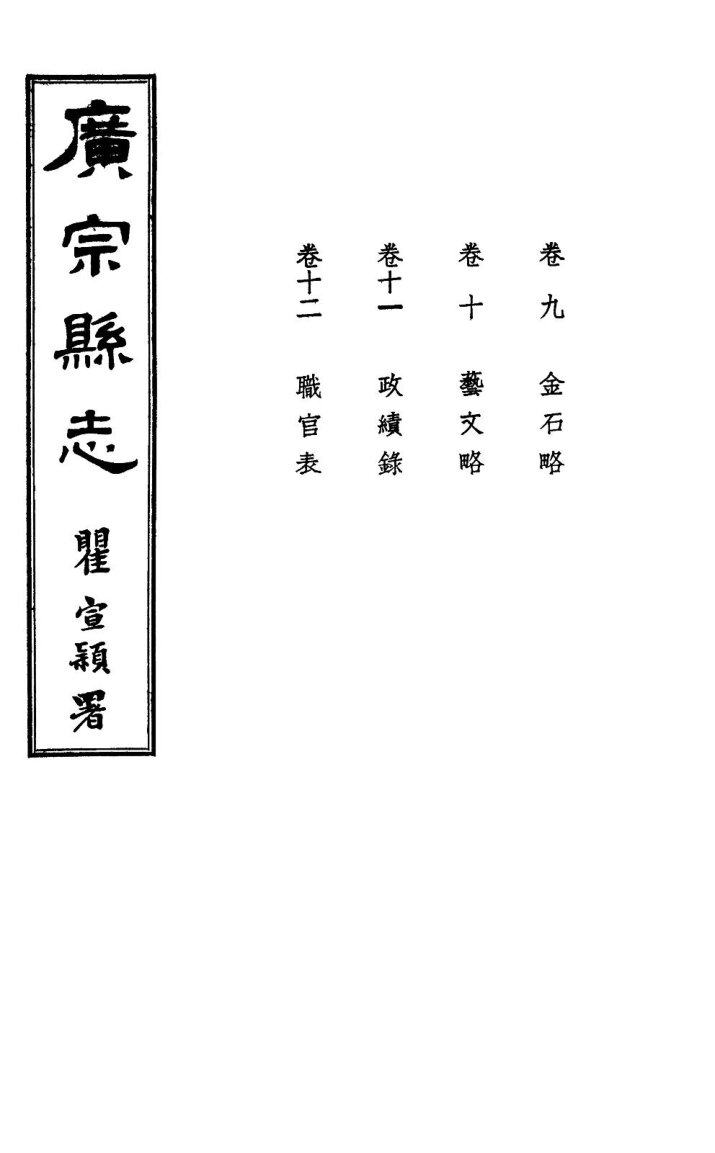 卷九 金石略
卷十 藝文略
卷十一 政績錄
卷十二 職官表
廣宗縣志
瞿宣穎署